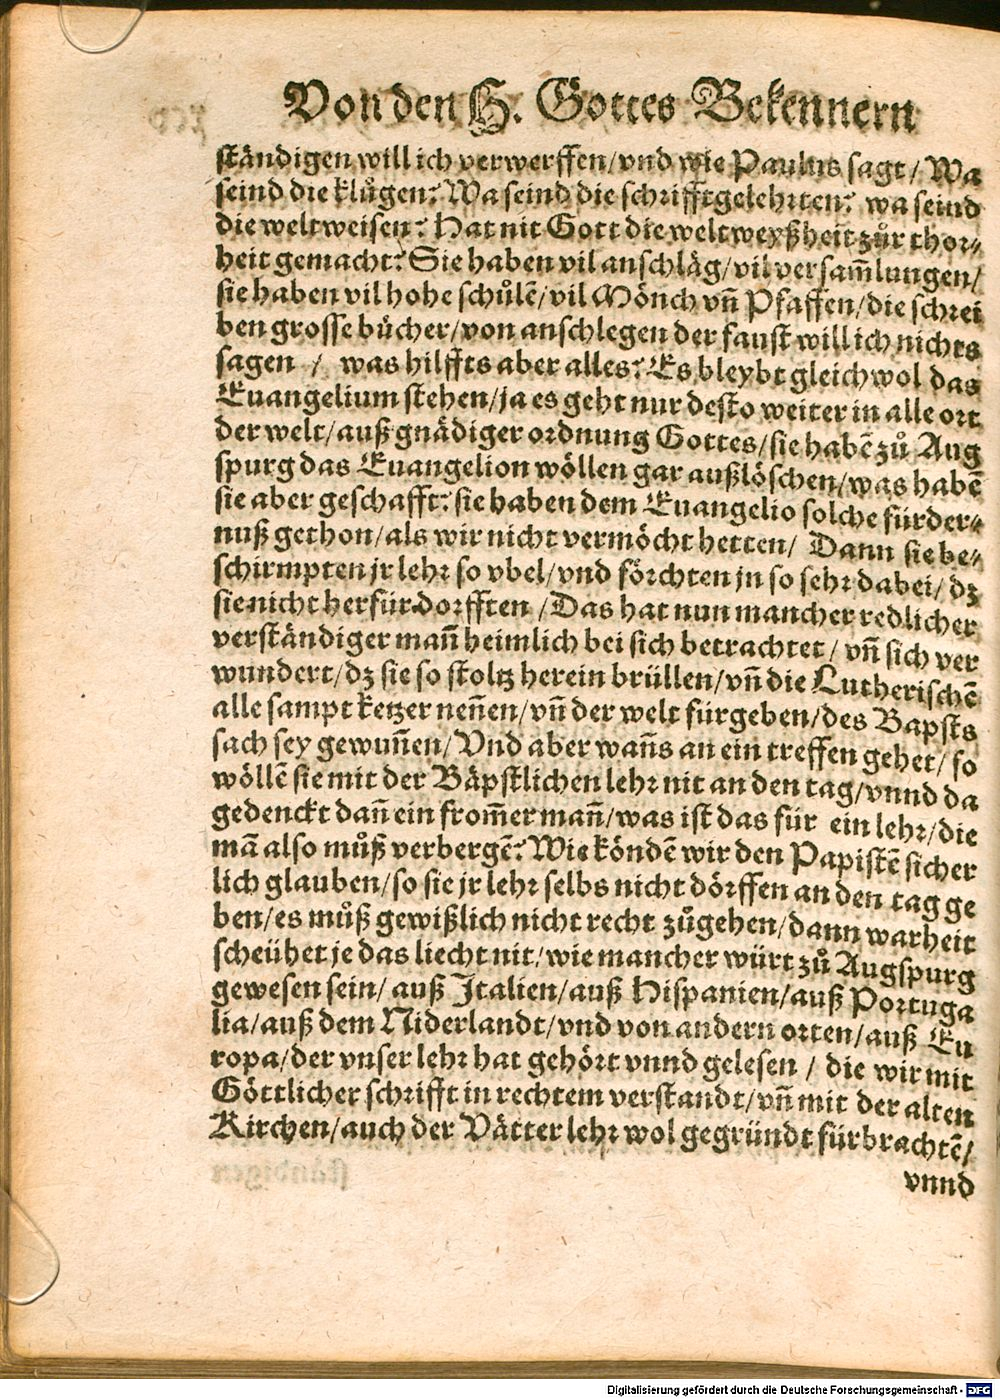 Von den H. Gottes Bekennern
ständigen will ich verwerffen/vnd wie Paulus sagt/ Wa
seind die klůgen? Wa seind die schrifftgelehrten? wa seind
die weltweisen? Hat nit Gott die weltweyßheit zůr thor-
heit gemacht? Sie haben vil anschläg/vil versam̃lungen/
sie haben vil hohe schůlẽ/vil Mönch vñ Pfaffen/die schrei
ben grosse bůcher/von anschlegen der faust will ich nichts
sagen / was hilffts aber alles? Es bleybt gleichwol das
Euangelium stehen/ja es geht nur desto weiter in alle ort
der welt/auß gnädiger ordnung Gottes/sie habẽ zů Aug
spurg das Euangelion wöllen gar außlöschen/was habẽ
sie aber geschafft? sie haben dem Euangelio solche fürder-
nuß gethon/als wir nicht vermöcht hetten/ Dann sie be-
schirmpten jr lehr so vbel/vnd förchten jn so sehr dabei/ dz
sie nicht herfür dorfften /Das hat nun mancher redlicher
verständiger mañ heimlich bei sich betrachtet/ vñ sich ver
wundert/dz sie so stoltz herein brüllen/vñ die Lutherischẽ
alle sampt ketzer neñen/vñ der welt fürgeben/des Bapsts
sach sey gewuñen/Vnd aber wañs an ein treffen gehet/ so
wöllẽ sie mit der Bäpstlichen lehr nit an den tag/vnnd da
gedenckt dañ ein from̃er mañ/was ist das für ein lehr/die
mã also můß verbergẽ? Wie köndẽ wir den Papistẽ sicher
lich glauben/so sie jr lehr selbs nicht dörffen an den tag ge
ben/es můß gewißlich nicht recht zůgehen/dann warheit
scheühet je das liecht nit/wie mancher würt zů Augspurg
gewesen sein/ auß Italien/auß Hispanien/auß Portuga
lia/auß dem Niderlandt/vnd von andern orten/auß Eu
ropa/der vnser lehr hat gehört vnnd gelesen / die wir mit
Göttlicher schrifft in rechtem verstandt/vñ mit der alten
Kirchen/auch der Vätter lehr wol gegründt fürbrachtẽ/
vnnd
Digitalisierung gefördert durch die Deutsche Forschungsgemeinschaft - DFG